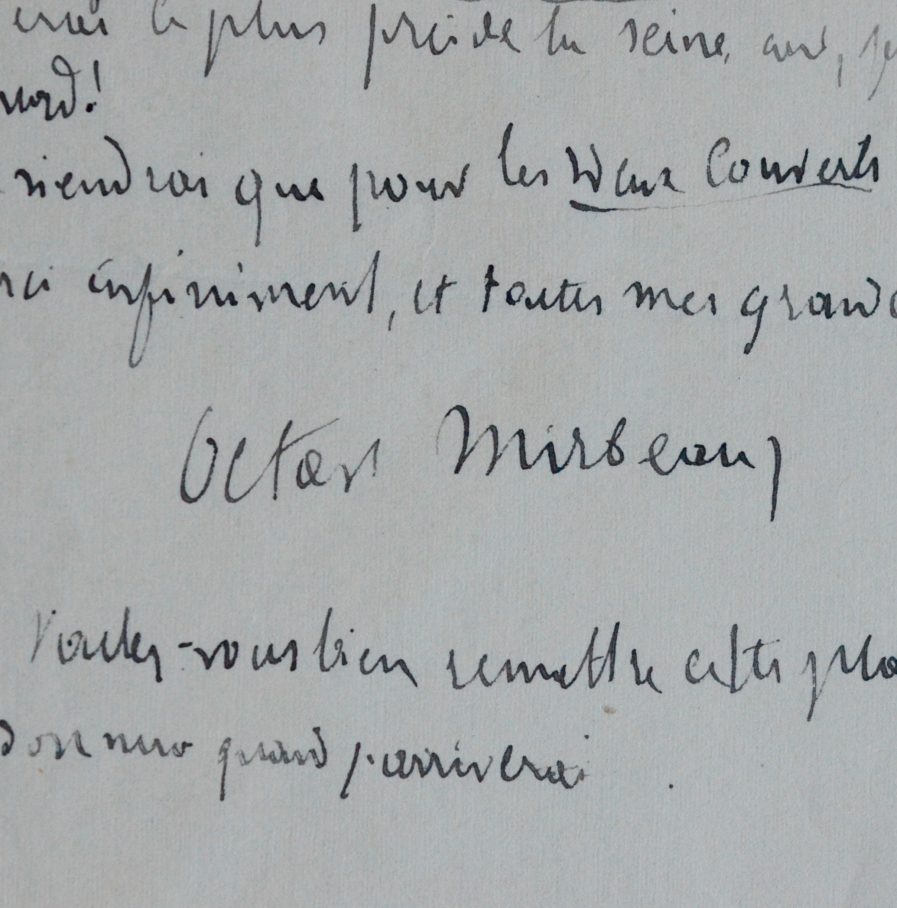 le plus près de la scène, car, je
sourd!
viendrai que pour les Deux Couverts
rci infiniment, et toutes mes grand
Octave Mirbeau
Voulez-vous bien remettre cette pla
donnera quand j'arriverai.